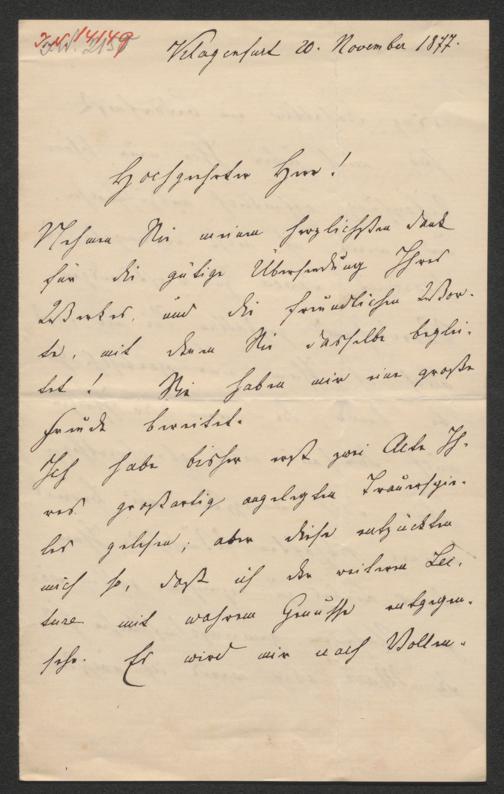 I.N. 14149
Klagenfurt 20. November 1877.
Hochgeehrter Herr!
Nehmen Sie meinen herzlichsten Dank
für die gütige Übersendung Ihres
Werkes, und die freundlichen Wor-
te, mit denen Sie dasselbe beglei-
tet! Sie haben mir eine große
Freude bereitet.
Ich habe bisher erst zwei Akte Ih-
res großartig angelegten Trauerspie-
les gelesen; aber diese entzückten
mich so, daß ich der weiteren Lec-
ture mit wahrem Genusse entgegen-
sehe. Es wird mir nach Vollen-